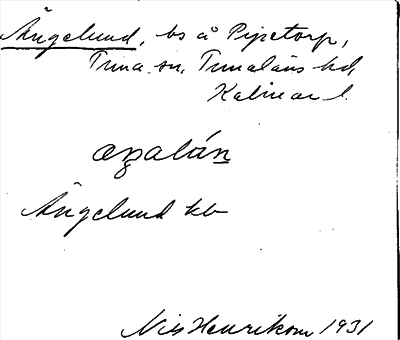 Ängelund, bs å Pipetorp,
Tuna sn, Tunaläns hd,
Kalmar l.
ängalún
Ängelund kb
Nils Henrikson 1931